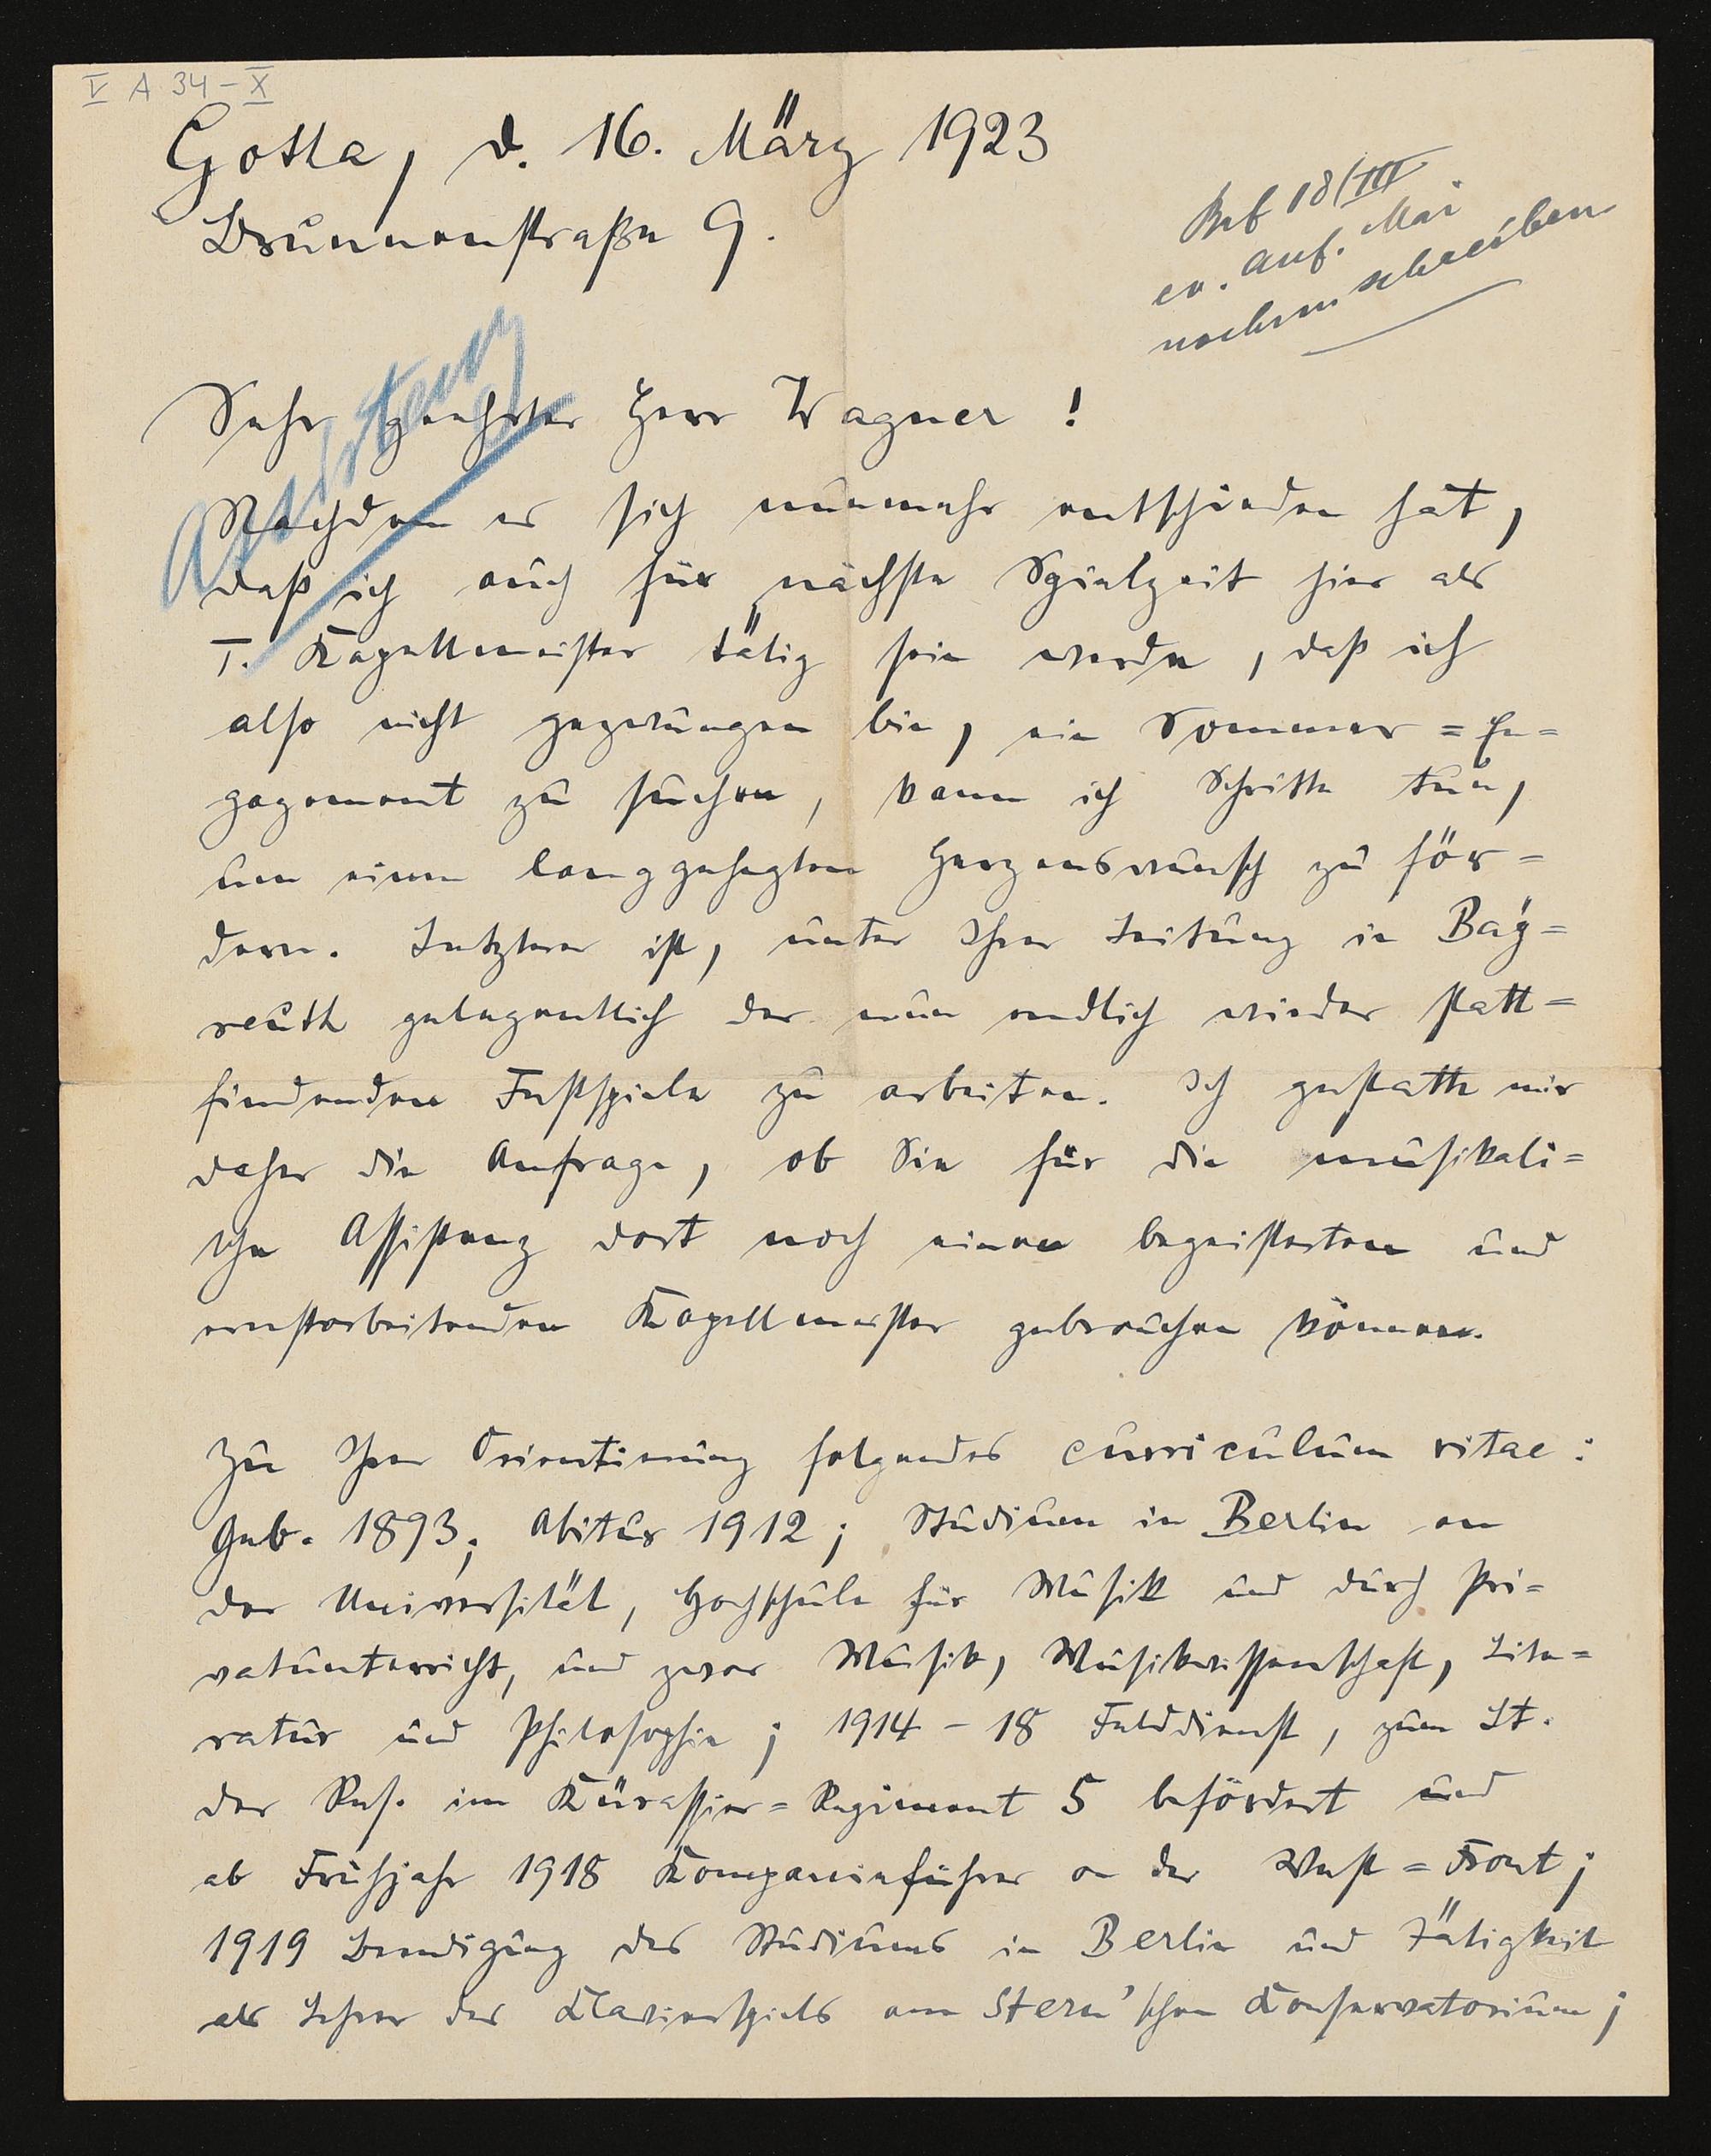 V A 34-X
Gotha, d. 16. März 1923
Brunnenstraße 9.
18/III
ev. Anf. Mai
nochm schreiben
Assistenz
Sehr geehrter Herr Wagner!
Nachdem es sich nunmehr entschieden hat,
daß ich auch für nächste Spielzeit hier als
I. Kapellmeister tätig sein werde, daß ich
also nicht gezwungen bin, ein Sommer=En=
gagement zu suchen, kann ich Schritte tun,
um einen langgehegten Herzenswunsch zu för=
dern. Letzterer ist, unter Ihrer Leitung in Bay=
reuth gelegentlich der nun endlich wieder statt=
findenden Festspiele zu arbeiten. Ich gestatte mir
daher die Anfrage, ob Sie für die musikali=
sche Assistenz dort noch einen begeisterten und
ernstarbeitenden Kapellmeister gebrauchen können.
Zu Ihrer Orientierung folgendes curriculum vitae:
Geb. 1893; Abitur 1912; Studium in Berlin an
der Universität, Hochschule für Musik und durch Pri=
vatunterricht, und zwar Musik, Musikwissenschaft, Lite=
ratur und Philosophie; 1914-18 Felddienst, zum Lt.
der Res. im Kürassier=Regiment 5 befördert und
ab Frühjahr 1918 Kompanieführer an der West=Front;
1919 Beendigung des Studiums in Berlin und Tätigkeit
als Lehrer des Klavierspiels am Stern'schen Konservatorium;